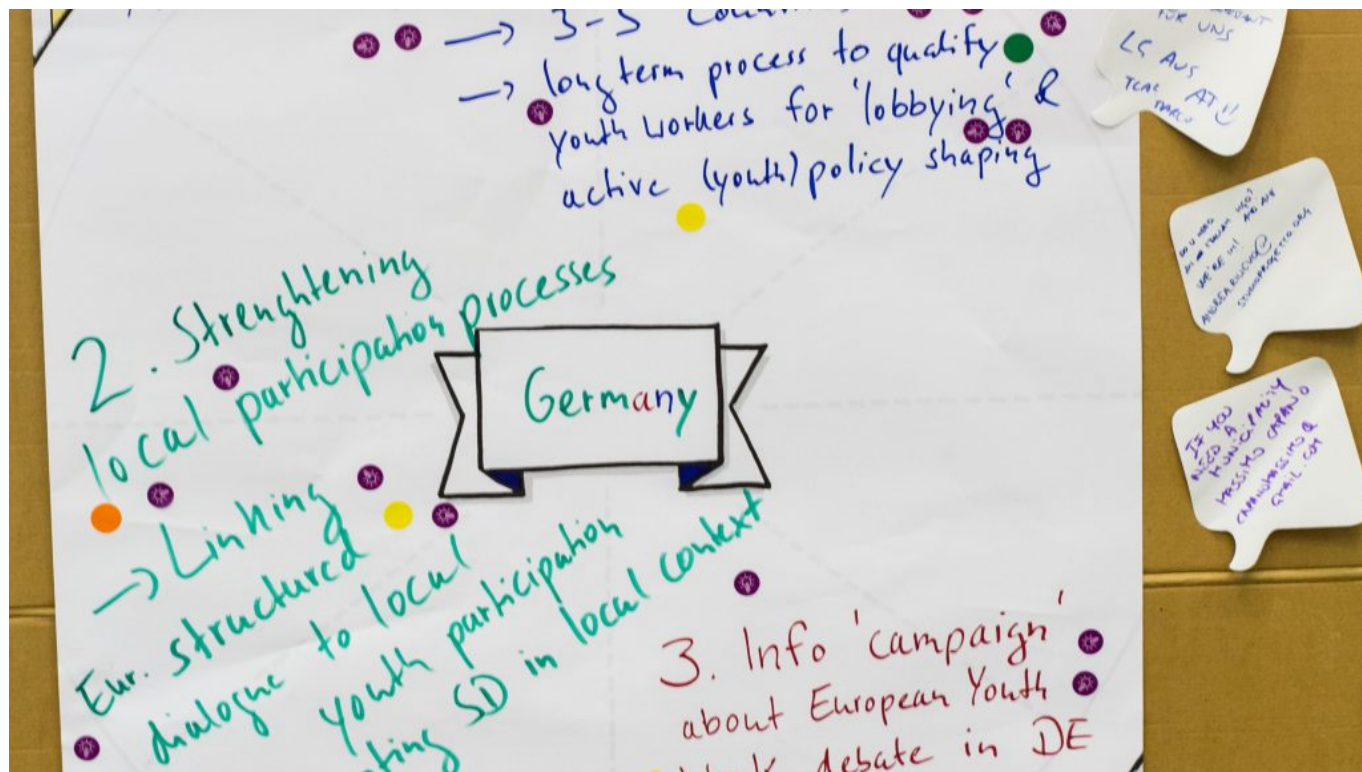 → 3-5
→ long term process to qualify
youth workers for 'lobbying' &
active (youth) policy shaping
2. Strenghtening
local participation processes
→ Linking
Eur. structured
dialogue to local
youth participation
SD in local context
Germany
3. Info 'campaign'
about European Youth
debate in DE
FÜR UNS
LG AUS
AT!!
WE'RE IN!
STUDIOPROGETTO.ORG
IF YOU
NEED A
MUNICIPALITY
MASSIMO CAPANO
CAPANOMASSIMO@
GMAIL.COM